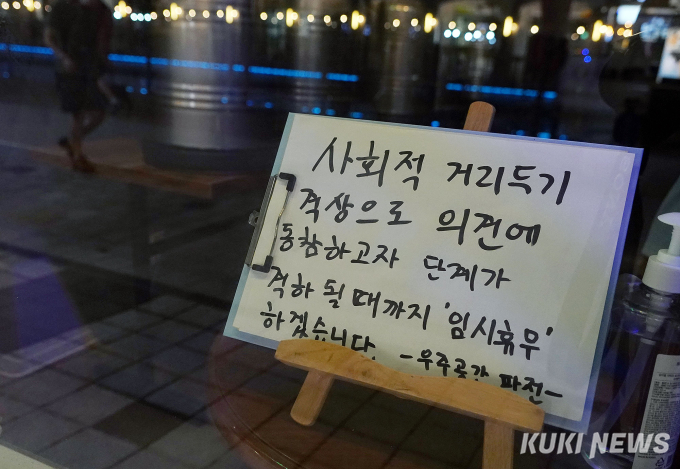 사회적 거리두기
격상으로 의견에
동참하고자 단계가
격하 될 때까지 '임시휴무'
하겠습니다.
-우주공간 파전-
KUKI NEWS